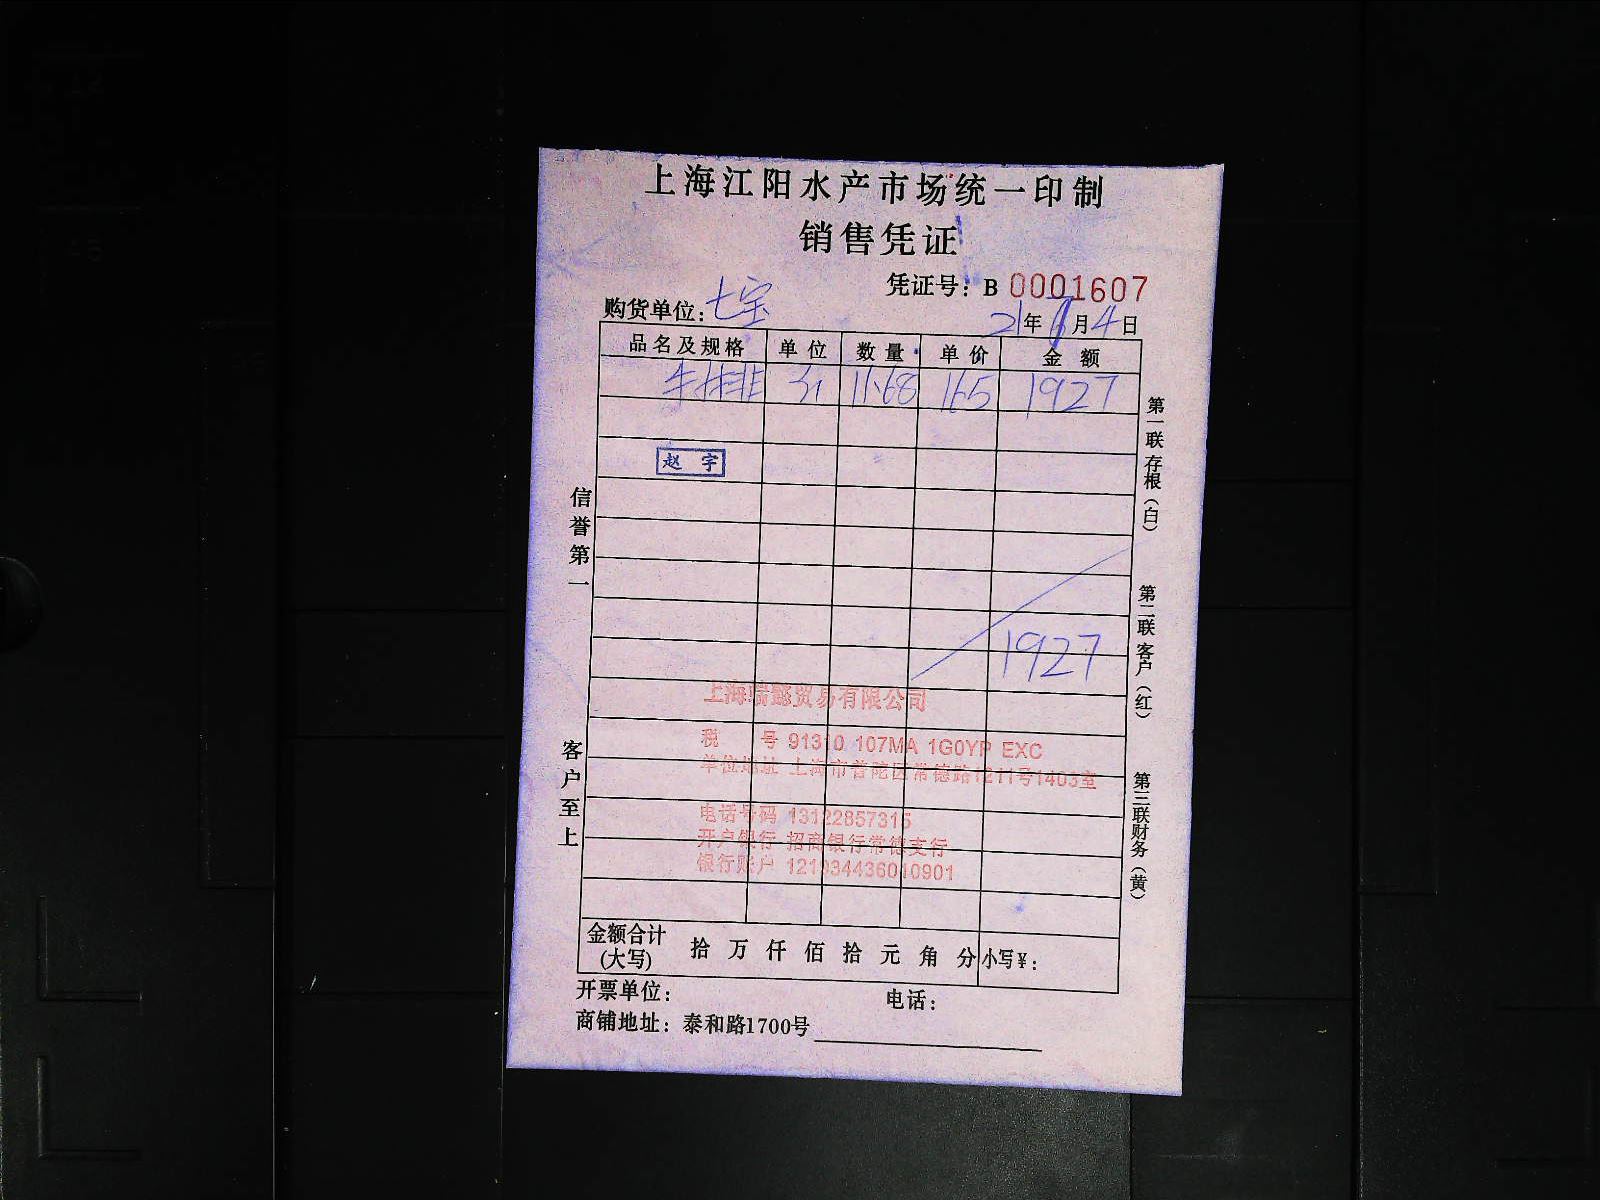 上海江阳水产市场统一印制
销售凭证
凭证号：B 0001607
购货单位：七宝
21年 月4日
品名及规格 单位 数量 单价 金额
牛排 11.68 165 1927
赵宇
1927
上海瑞懿贸易有限公司
税 号 91310 107MA 1G0YP EXC
单位地址 上海市普陀区常德路1211号1403室
电话号码 13122857315
开户银行 招商银行常德支行
银行账户 121934436010901
金额合计
(大写) 拾 万 仟 佰 拾 元 角 分 小写￥：
开票单位： 电话：
商铺地址：泰和路1700号
信誉第一
客户至上
第一联 存根（白）
第二联 客户（红）
第三联 财务（黄）